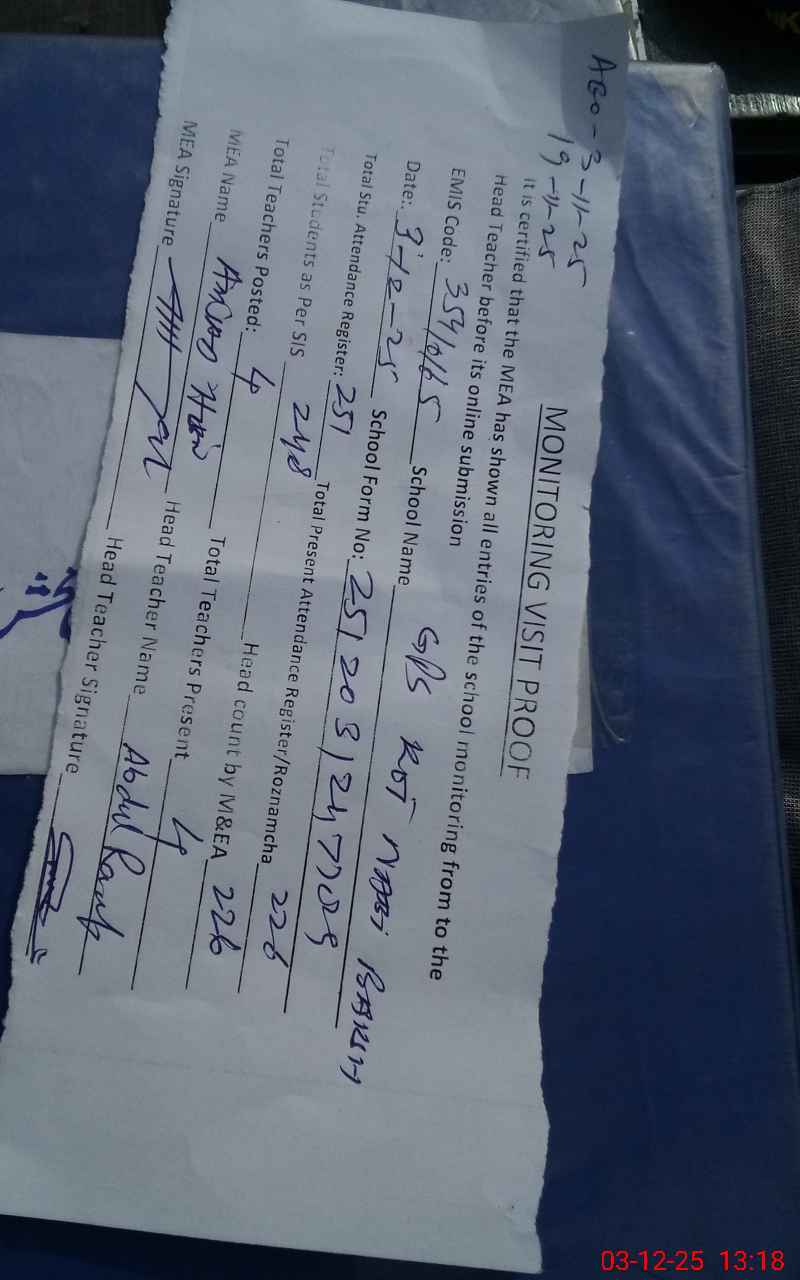 AEO - 3-11-25
19-11-25
MONITORING VISIT PROOF
It is certified that the MEA has shown all entries of the school monitoring from to the
Head Teacher before its online submission
EMIS Code: 35410165 School Name GPS KOT NABI BAKSH
Date: 3-12-25 School Form No: 2512031247709
Total Stu. Attendance Register: 251 Total Present Attendance Register/Roznamcha 226
Total Students as Per SIS 248 Head count by M&EA 226
Total Teachers Posted: 4 Total Teachers Present 4
MEA Name Head Teacher Name Abdul Raouf
MEA Signature Head Teacher Signature
03-12-25 13:18